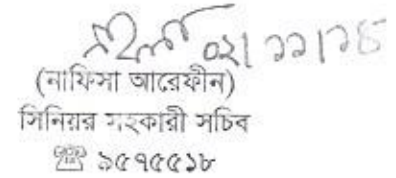 ০২/১১/১৫
(নাফিসা আরেফীন)
সিনিয়র সহকারী সচিব
☏ ৯৫৭৫৫১৮